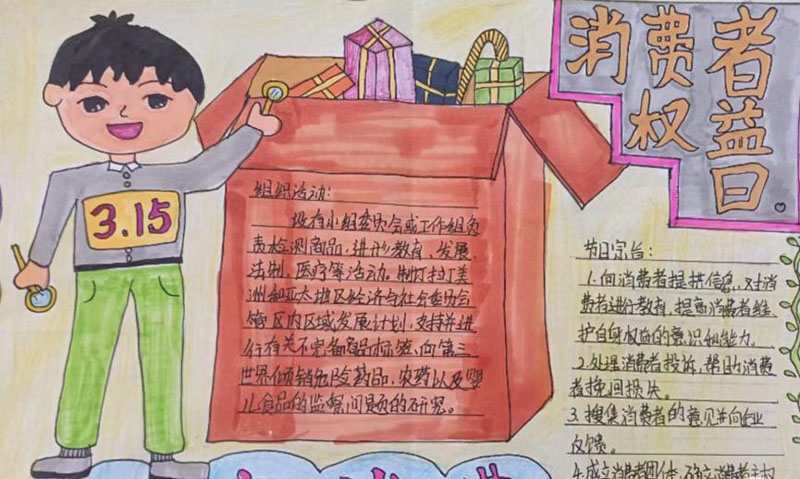 消费者
权益日。
3.15
组织活动:
设有小组委员会或工作组负
责检测商品、进行教育、发展、
法制、医疗等活动,制订拉丁美
洲和亚太地区经济与社会委员会
管区内区域发展计划,支持并进
行有关不完备商品标签,向第三
世界倾销危险药品,农药以及婴
儿食品的监督问题的研究。
节日宗旨:
1.向消费者提供信息,对消
费者进行教育,提高消费者维
护自身权益的意识和能力。
2.处理消费者投诉,帮助消费
者挽回损失。
3.搜集消费者的意见并向企业
反馈。
4.成立消费者团体,确立消费者主权